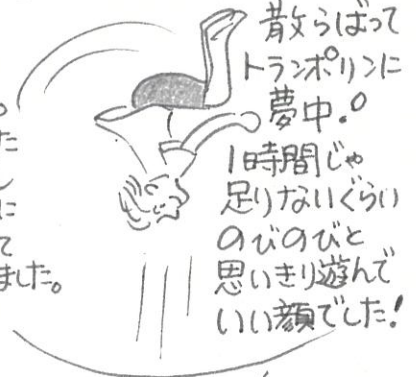 散らばって
トランポリンに
夢中!
1時間じゃ
足りないぐらい
のびのびと
思いきり遊んで
いい顔でした!
た
に
て
ました。